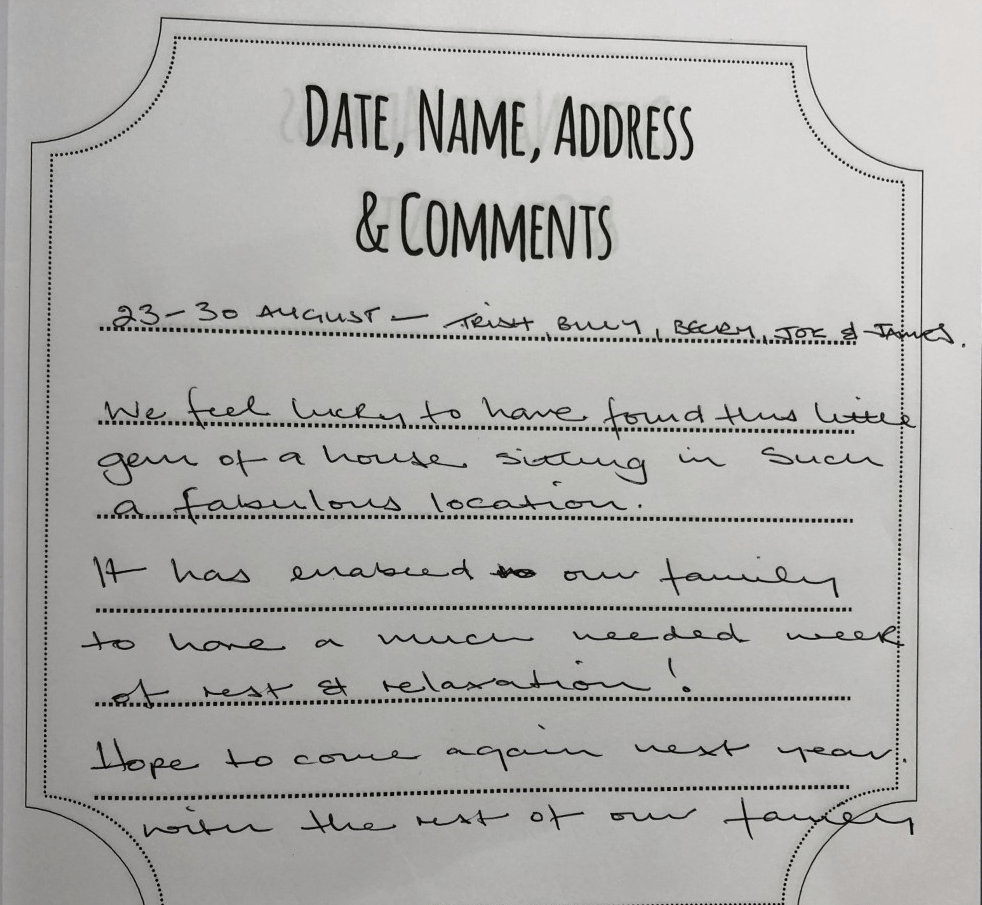 DATE, NAME, ADDRESS
& COMMENTS
23-30 AUGUST — TRISH, BILLY, BECKY, JOE & JAMES.
We feel lucky to have found this little
gem of a house sitting in such
a fabulous location.
It has enabled our family
to have a much needed week
of rest & relaxation!
Hope to come again next year.
with the rest of our family